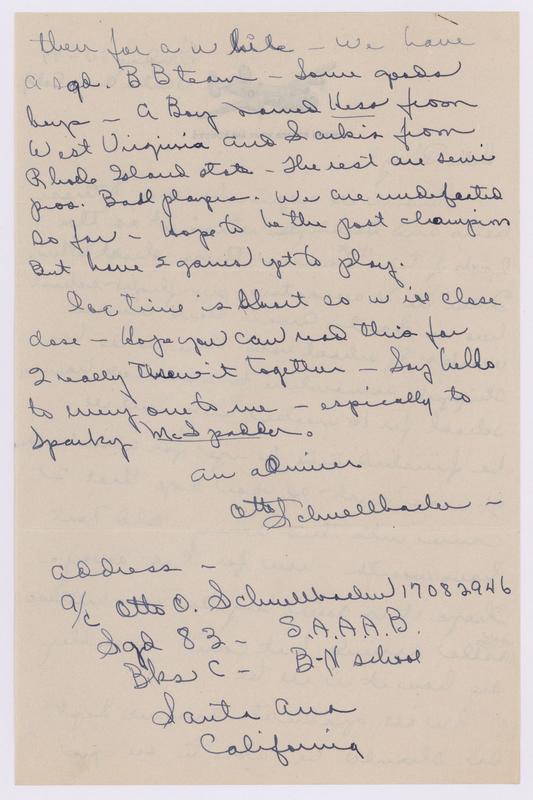 then for a while - We have
a sqd. B B team - Some good
boys - A Boy named Hess from
West Virginia and Larkin from
Rhode Island state - The rest are semi
pros. Ball players. We are undefeated
so far - Hope to be the post champions
But have 2 games yet to play.
Doc time is short so will close
close - Hope you can read this for
I really threw it together - Say hello
to every one to me - espically to
Sparky McSpadden.
an admirer
Otto Schnellbacher -
address -
A/C Otto O. Schnellbacher 17082946
Sqd 82 - S.A.A.A.B.
Bks C - B-N School
Santa Ana
California